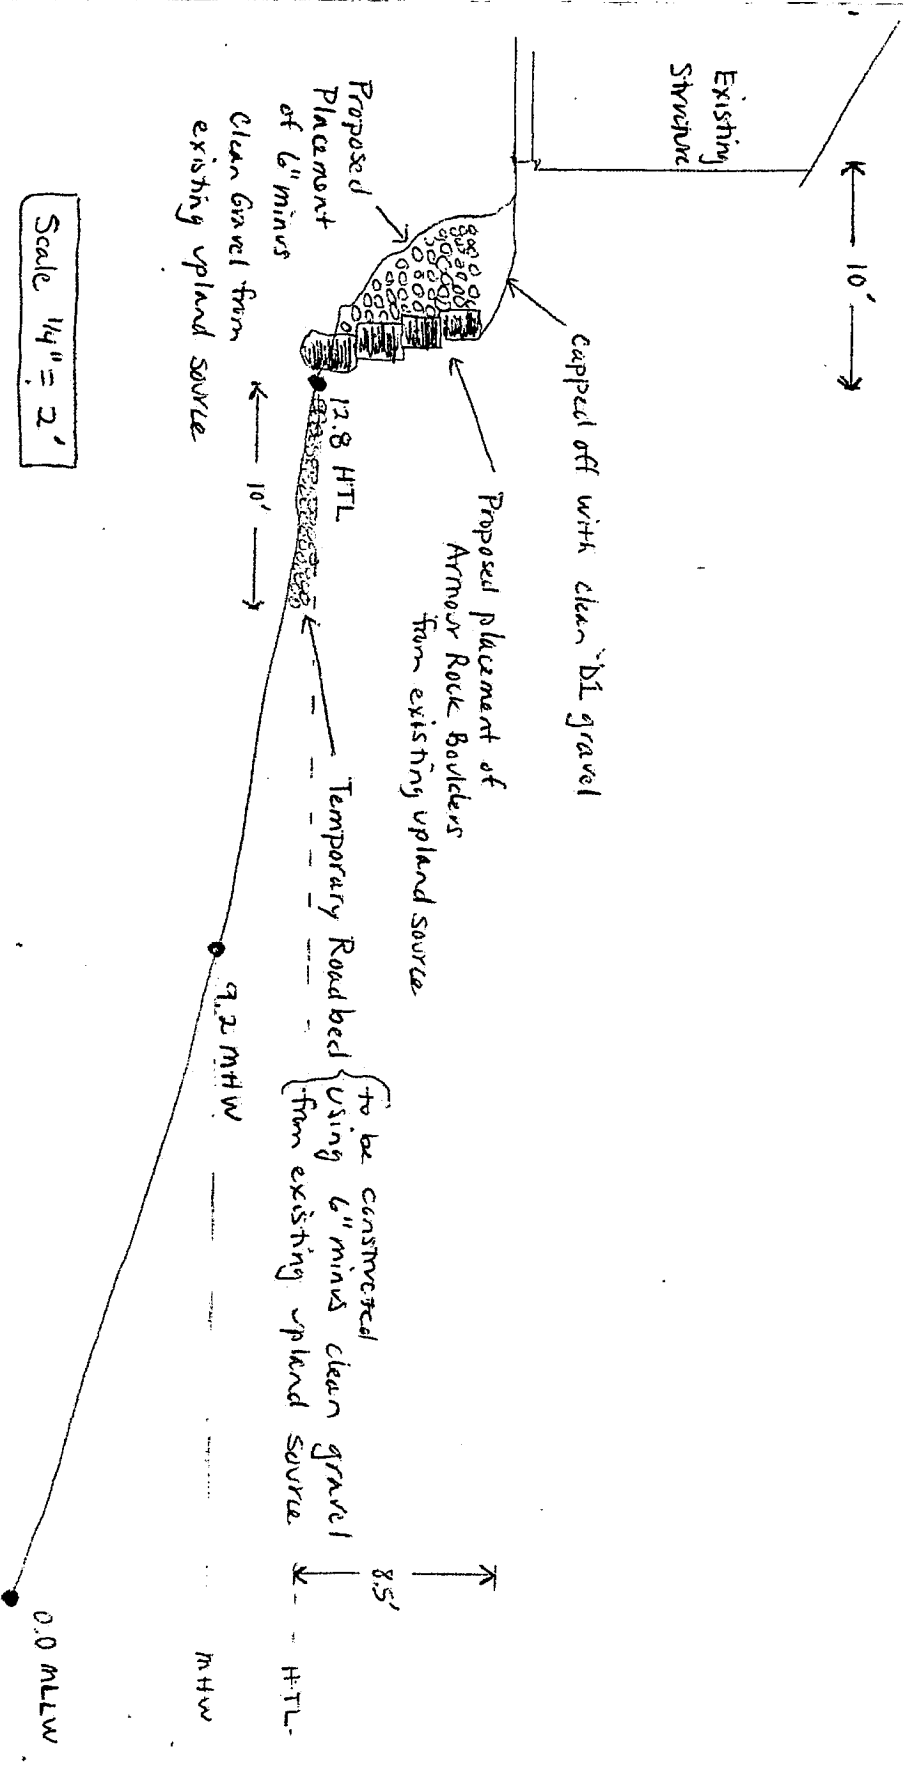 Existing
Structure
10'
capped off with clean "D1 gravel
Proposed placement of
Armour Rock Boulders
from existing upland source
Proposed
Placement
of 6" minus
Clean Gravel from
existing upland source
12.8 HTL
10'
Temporary Roadbed
to be constructed
using 6" minus clean gravel
from existing upland source
8.5'
HTL
9.2 MHW
MHW
0.0 MLLW
Scale 1/4" = 2'